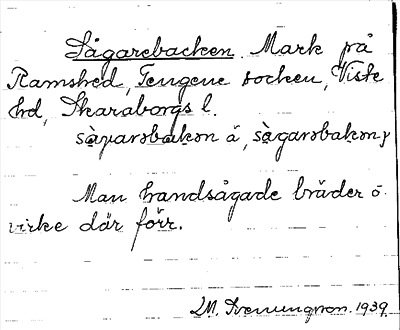 Sågarebacken. Mark på
Ramshed, Tengene socken, Viste
hd, Skaraborgs l.
sàgarsbakọn å, sàgarsbakọn
Man handsågade bräder o.
virke där förr.
L M. Svenungsson. 1939.